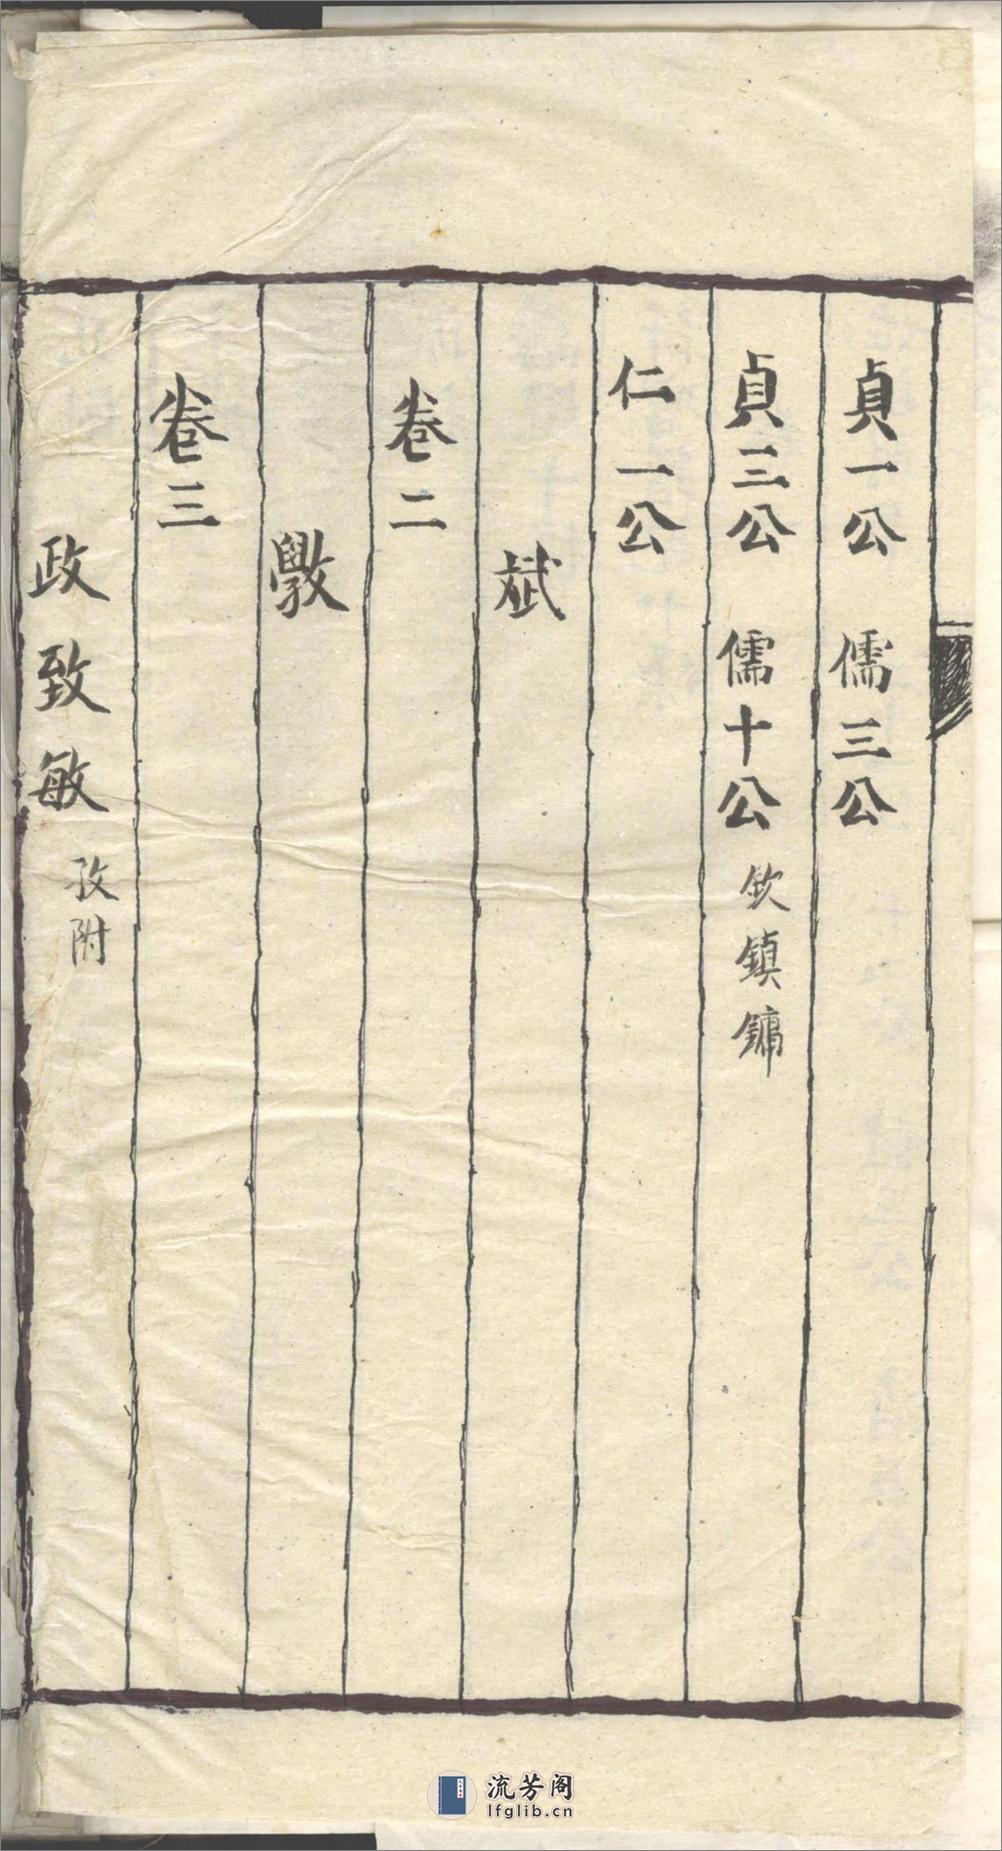 貞一公　儒三公
貞三公　儒十公 欽鎮鏞
仁一公
斌
卷二
斆
卷三
政致敏 孜附
流芳阁
lfglib.cn